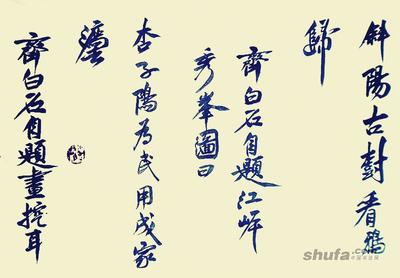 斜陽古樹看鴉
歸
齊白石自題江岸
秀峯圖曰
杏子隖老民用我家
灋
齊白石自題畫挖耳
shufa.com